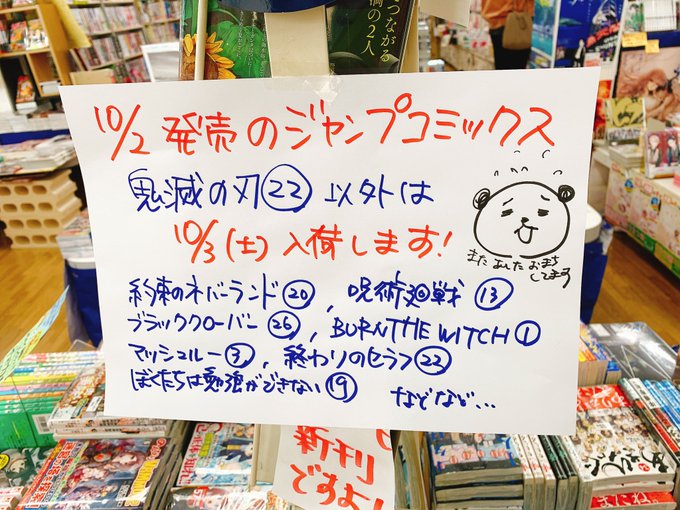 つながる
の2人
10/2 発売のジャンプコミックス
鬼滅の刃㉒以外は
10/3(土)入荷します!
またあしたおまち
してます
約束のネバーランド⑳, 呪術廻戦⑬
ブラッククローバー㉖, BURN THE WITCH①
マッシュルー③, 終わりのセラフ㉒
ぼくたちは勉強ができない⑲ などなど...
新刊
ですよ!